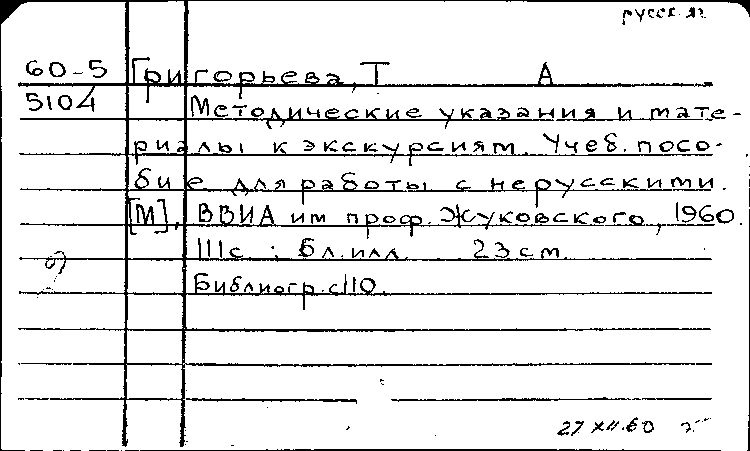 русск. яз
60-5 Григорьева, Т А
5104 Методические указания и мате-
риалы к экскурсиям. Учеб. посо-
бие для работы с нерусскими.
[М], ВВИА им проф. Жуковского, 1960.
111с ; 6л.илл. 23см.
Библиогр. с110.
27 XII.60